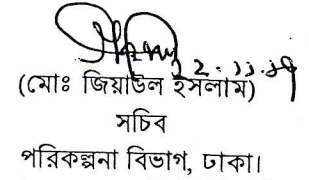 ২.১১.১৭
(মোঃ জিয়াউল ইসলাম)
সচিব
পরিকল্পনা বিভাগ, ঢাকা।